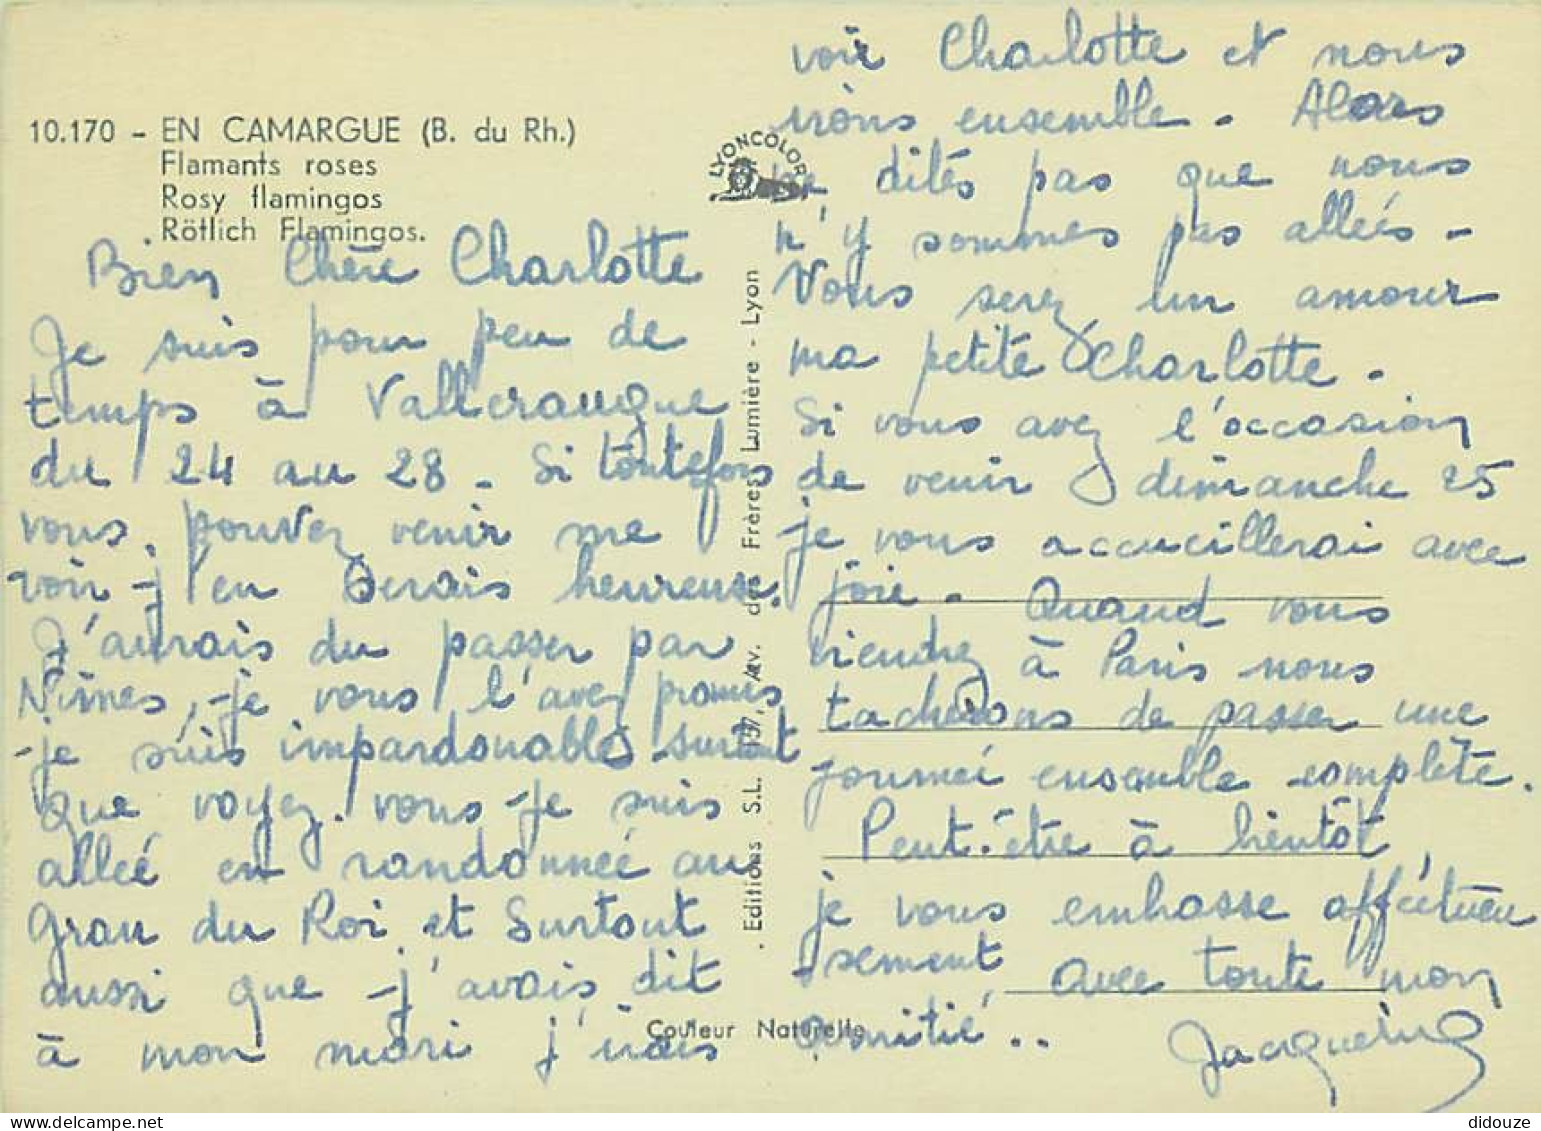 10.170 - EN CAMARGUE (B. du Rh.)
Flamants roses
Rosy flamingos
Rötlich Flamingos.
LYONCOLOR
Bien Chère Charlotte
Je suis pour peu de
temps à Valleraugue
du 24 au 28 - Si toutefois
vous pouvez venir me
voir - j'en serais heureuse.
J'aurais du passer par
Nimes, - je vous l'avez promis
- je suis impardonable surtout
que voyez vous - je suis
alleé en randonneé au
Grau du Roi et surtout
aussi que - j'avais dit
à mon mari j'irais
voir Charlotte et nous
irons ensemble - Alors
ne dites pas que nous
n'y sommes pas alleés -
Vous serez un amour
ma petite Charlotte -
Si vous avez l'occasion
de venir dimanche 25
je vous accueillerai avec
joie - Quand vous
viendrez à Paris nous
tacherons de passer une
journeé ensemble complète.
Peut-être à bientôt
je vous embrasse affectueu
-sement avec toute mon
amitié..
Jacqueline
. Editions S.L. 157, Av. des Frères Lumière - Lyon
Couleur Naturelle
didouze